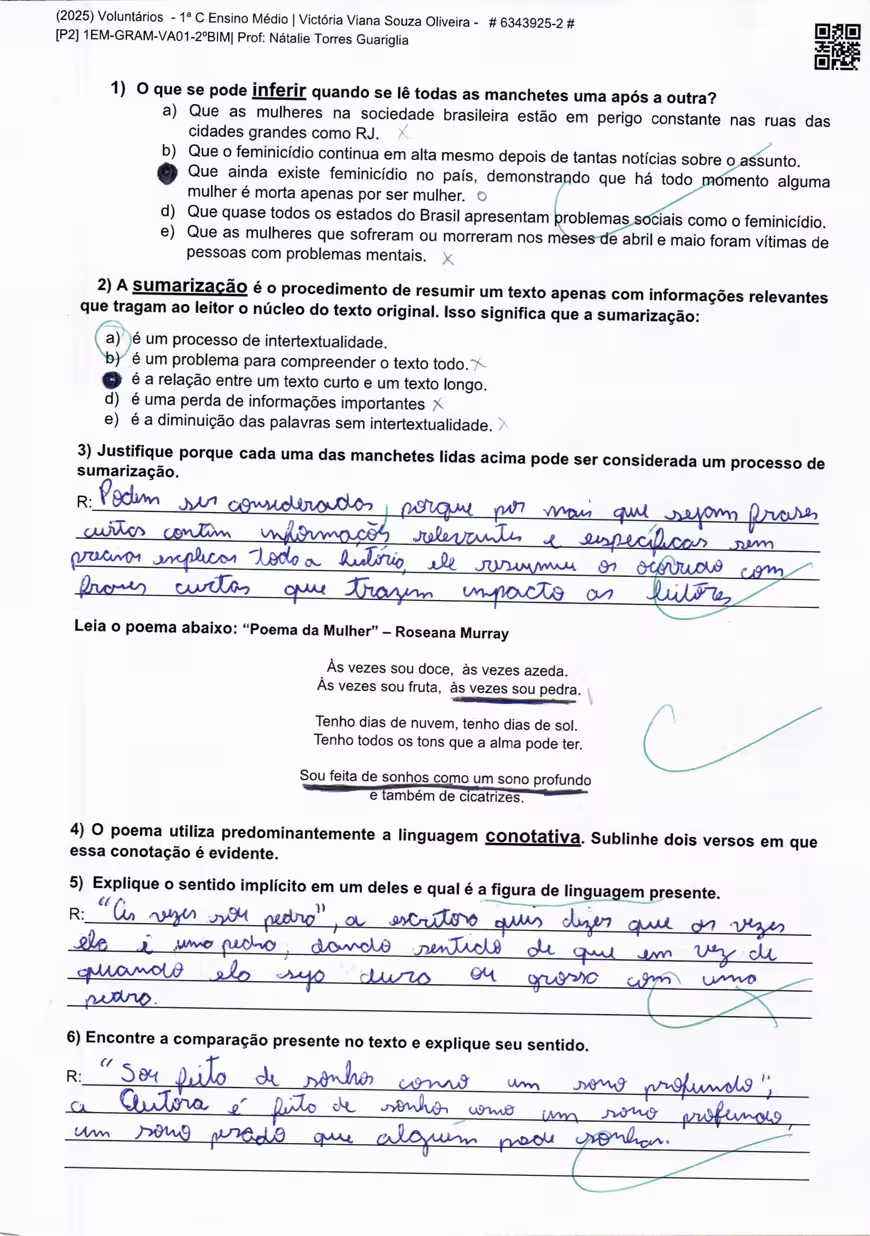 (2025) Voluntários - 1ª C Ensino Médio | Victória Viana Souza Oliveira - # 6343925-2 #
[P2] 1EM-GRAM-VA01-2ºBIM| Prof: Nátalie Torres Guariglia
1) O que se pode inferir quando se lê todas as manchetes uma após a outra?
a) Que as mulheres na sociedade brasileira estão em perigo constante nas ruas das
cidades grandes como RJ.
b) Que o feminicídio continua em alta mesmo depois de tantas notícias sobre o assunto.
Que ainda existe feminicídio no país, demonstrando que há todo momento alguma
mulher é morta apenas por ser mulher.
d) Que quase todos os estados do Brasil apresentam problemas sociais como o feminicídio.
e) Que as mulheres que sofreram ou morreram nos meses de abril e maio foram vítimas de
pessoas com problemas mentais.
2) A sumarização é o procedimento de resumir um texto apenas com informações relevantes
que tragam ao leitor o núcleo do texto original. Isso significa que a sumarização:
a) é um processo de intertextualidade.
b) é um problema para compreender o texto todo.
é a relação entre um texto curto e um texto longo.
d) é uma perda de informações importantes
e) é a diminuição das palavras sem intertextualidade.
3) Justifique porque cada uma das manchetes lidas acima pode ser considerada um processo de
sumarização.
R: Podem ser considerados, porque por mais que sejam frases
curtas contém informações relevantes e específicas sem
precisar explicar toda a história, ele resumiu os ocorrido com
frases curtas que trazem impacto as leitores
Leia o poema abaixo: “Poema da Mulher” – Roseana Murray
Às vezes sou doce, às vezes azeda.
Às vezes sou fruta, às vezes sou pedra.
Tenho dias de nuvem, tenho dias de sol.
Tenho todos os tons que a alma pode ter.
Sou feita de sonhos como um sono profundo
e também de cicatrizes.
4) O poema utiliza predominantemente a linguagem conotativa. Sublinhe dois versos em que
essa conotação é evidente.
5) Explique o sentido implícito em um deles e qual é a figura de linguagem presente.
R: "As vezes sou pedra", a escritora quis dizer que as vezes
ela é uma pedra, dando sentido de que em vez de
quando ela seja dura ou grossa com uma
pedra.
6) Encontre a comparação presente no texto e explique seu sentido.
R: "Sou feita de sonhos como um sono profundo",
a Autora é feita de sonhos como um sono profundo,
um sono pesado que alguém pode sonhar.